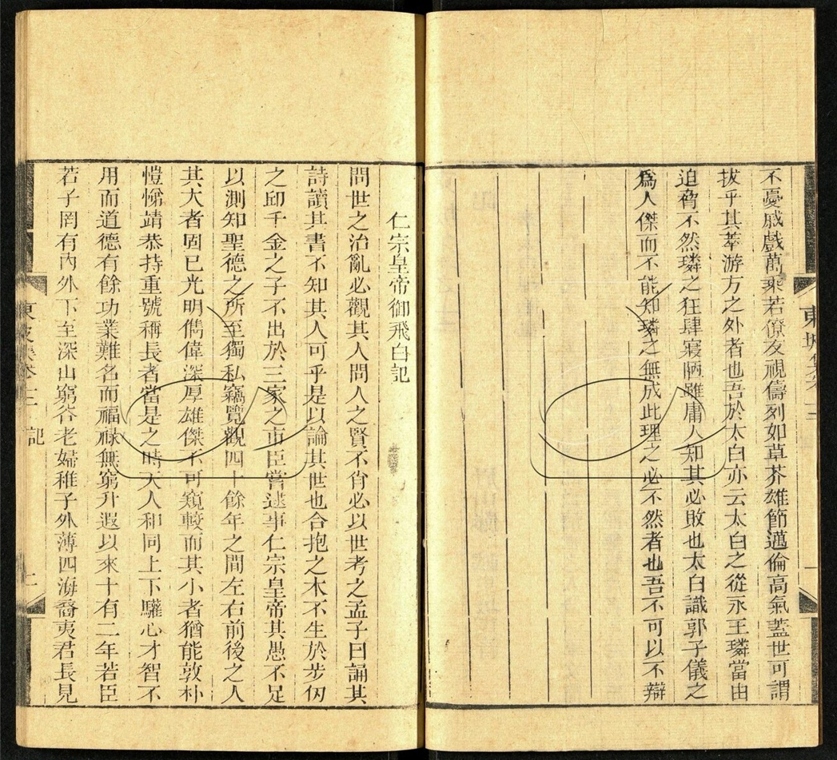 不憂戚戲萬乘若僚友視儔列如草芥雄節邁倫高氣蓋世可謂
拔乎其萃游方之外者也吾於太白亦云太白之從永王璘當由
迫脅不然璘之狂肆寢陋雖庸人知其必敗也太白識郭子儀之
爲人傑而不能知璘之無成此理之必不然者也吾不可以不辯
仁宗皇帝御飛白記
問世之治亂必觀其人問人之賢不肖必以世考之孟子曰誦其
詩讀其書不知其人可乎是以論其世也合抱之木不生於步仞
之邱千金之子不出於三家之市臣嘗逮事仁宗皇帝其愚不足
以測知聖德之所至獨私竊覽觀四十餘年之間左右前後之人
其大者固已光明儁偉深厚雄傑不可窺較而其小者猶能敦朴
愷悌靖恭持重號稱長者當是之時天人和同上下驩心才智不
用而道德有餘功業難名而福祿無窮升遐以來十有二年若臣
若子罔有內外下至深山窮谷老婦稚子外薄四海裔夷君長見
記